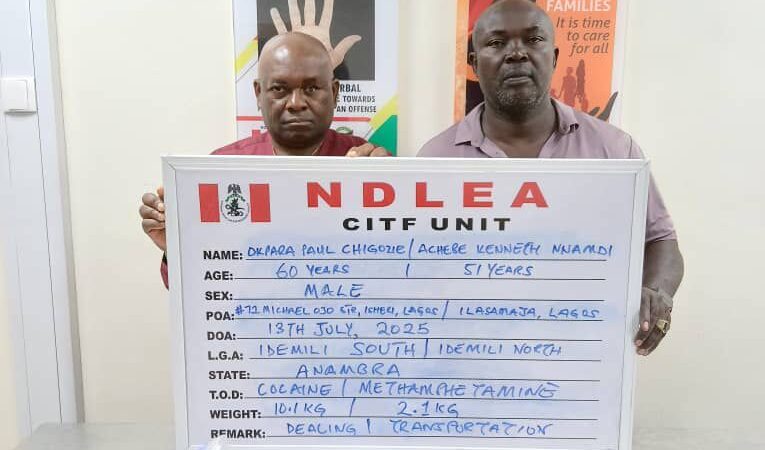 FAMILIES
It is time
to care
for all
RBAL
E TOWARDS
AN OFFENSE
NDLEA
CITF UNIT
NAME: OKPARA PAUL CHIGOZIE / ACHEBE KENNETH NNAMDI
AGE: 60 YEARS | 51 YEARS
SEX: MALE
POA: #72 MICHAEL OJO STR, ISHERI, LAGOS / ILASAMAJA, LAGOS
DOA: 13TH JULY, 2025
L.G.A: IDEMILI SOUTH / IDEMILI NORTH
STATE: ANAMBRA
T.O.D: COCAINE / METHAMPHETAMINE
WEIGHT: 10.1KG / 2.1KG
REMARK: DEALING / TRANSPORTATION